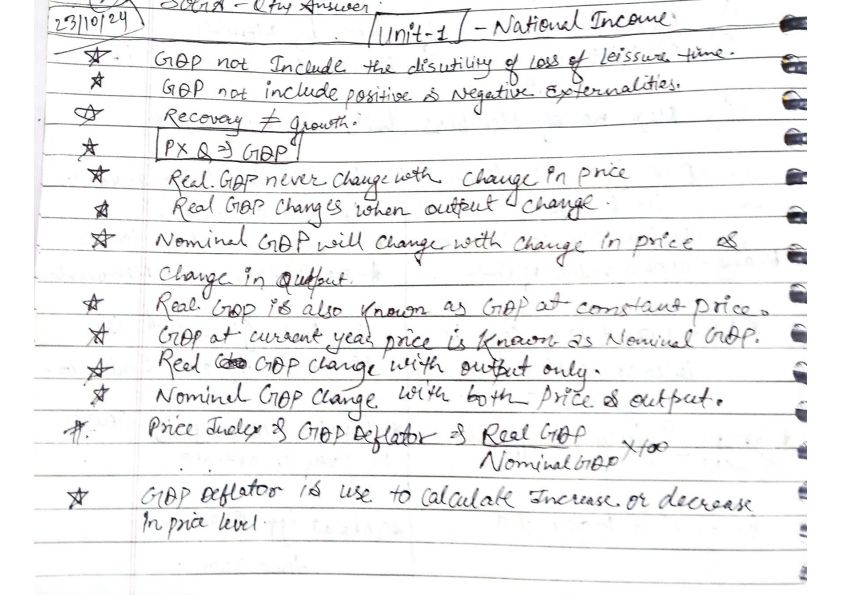 23/10/24
Unit-1 - National Income.
GDP not Include the disutility of loss of leissure time.
GDP not include positive & Negative Externalities.
Recovery ≠ growth.
P X Q ⇒ GDP
Real. GDP never change with change in price
Real GDP changes when output change.
Nominal GDP will change with change in price &
change in output.
Real GDP is also known as GDP at constant price.
GDP at current year price is known as Nominal GDP.
Real GDP change with output only.
Nominal GDP change with both price & output.
#. Price Index & GDP Deflator ⇒ Real GDP
Nominal GDP X100
GDP Deflator is use to calculate Increase or decrease
In price level.